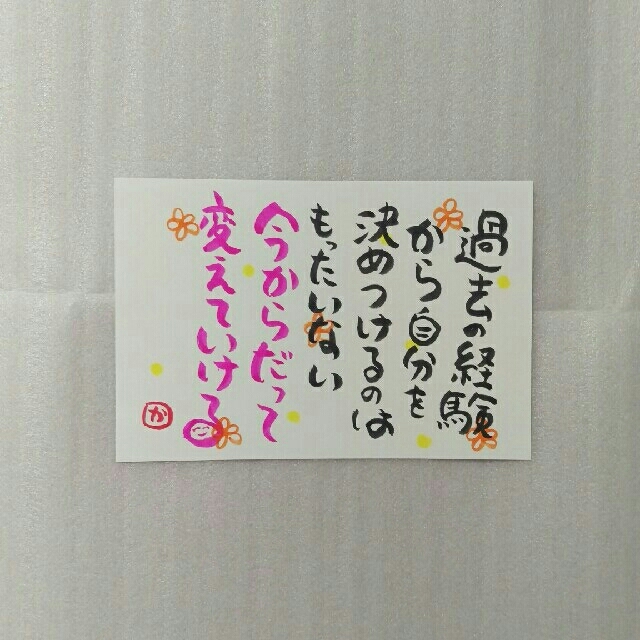 過去の経験
から自分を
決めつけるのは
もったいない
今からだって
変えていける
か